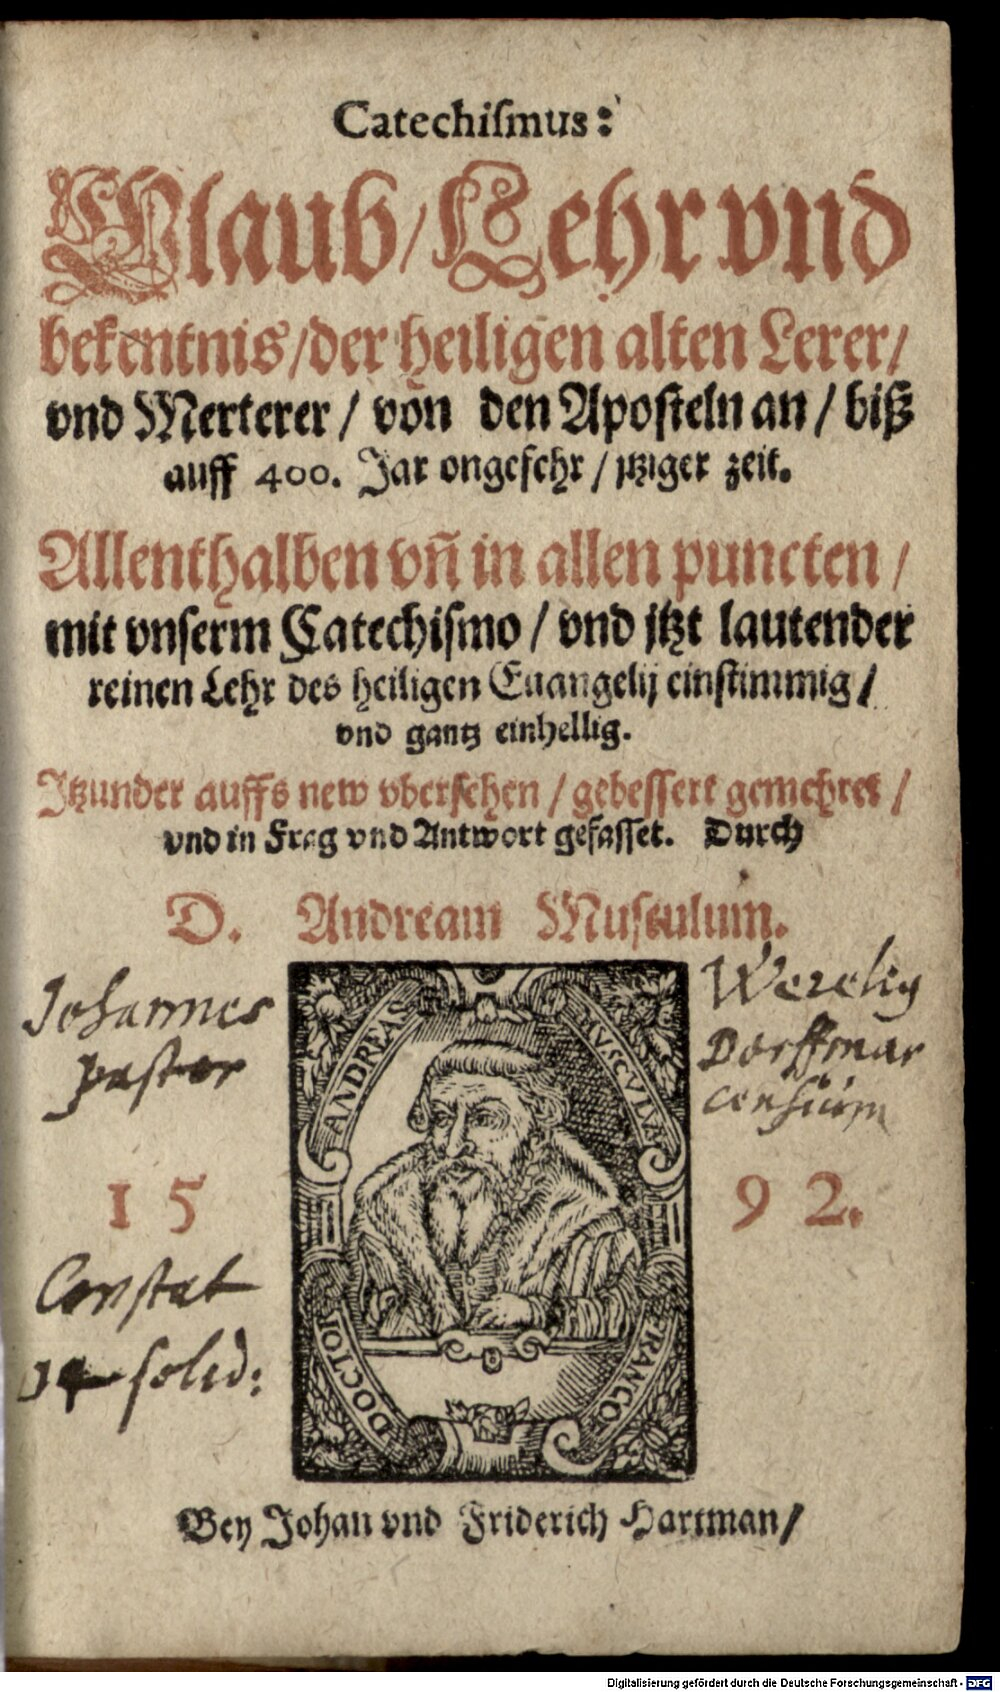 Catechiſmus:
Glaub / Lehr vnd
bekentnis / der heiligen alten Lerer /
vnd Merterer / von den Apoſteln an / biß
auff 400. Jar ongefehr / jtziger zeit.
Allenthalben vn̄ in allen puncten /
mit vnſerm Catechiſmo / vnd jtzt lautender
reinen Lehr des heiligen Euangelij einſtimmig /
vnd gantz einhellig.
Jtzunder auffs new vberſehen / gebeſſert gemehret /
vnd in Frag vnd Antwort gefaſſet. Durch
D. Andream Muſculum.
Johannes
paſtor
ANDREAS
MVSCVLVS
DOCTOR
FRANCO
15
92.
Conſtat
14 ſolid:
Bey Johan vnd Friderich Hartman /
Digitalisierung gefördert durch die Deutsche Forschungsgemeinschaft - DFG